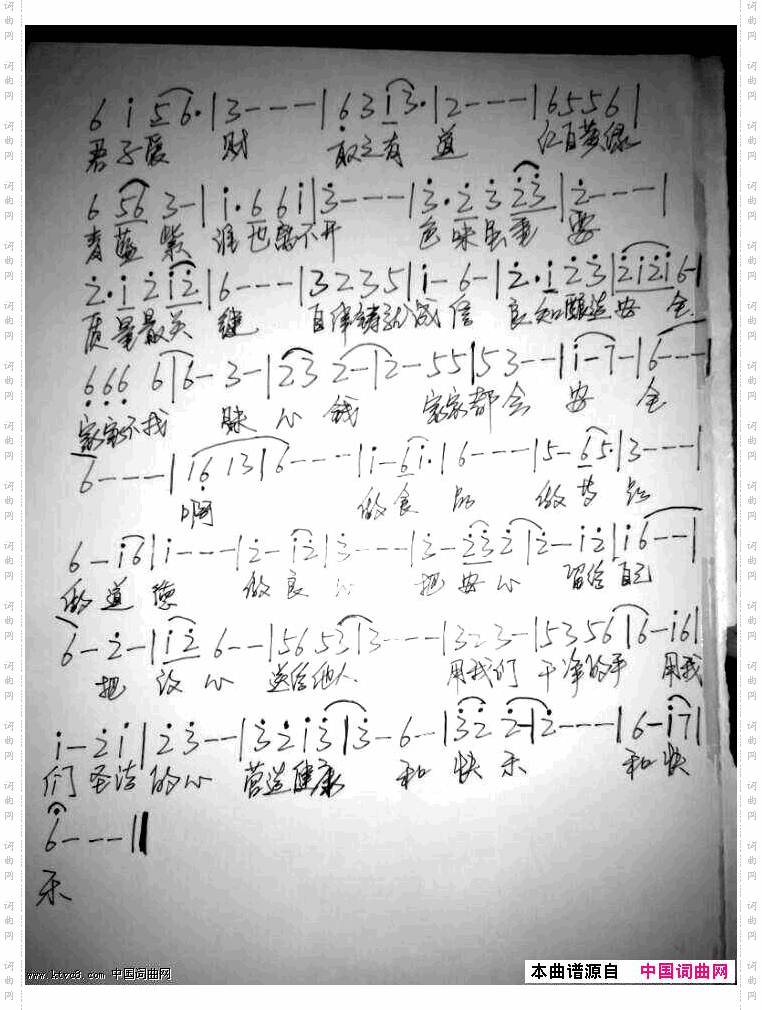 6 1̇ 5 6· | 3 - - - | 6̣ 3 1̇ 3· | 2 - - - | 6 5 5 6 |
君子爱 财 取之有 道 红白黄绿
6 56 3 - | 1̇· 6 6 1̇ | 3̇ - - - | 3̇· 2̇ 3̇ 2̇3̇ | 2̇ - - - |
青蓝 紫 谁也离不开 色味虽重 要
2̇· 1̇ 2̇ 1̇2̇ | 6 - - - | 3 2 3 5 | 1̇ - 6 - | 2̇· 1̇ 2̇ 3̇ | 2̇1̇2̇1̇ 6 - |
质量最关 键 自律铸就诚信 良知酿造安 全
6̣ 6̣ 6̣ 6 | 6 - 3 - | 23 2 - | 2 - 5 5 | 5 3 - - | 1̇ - 7 - | 6 - - - |
家家不找 昧心钱 家家都会 安 全
6 - - - | 1 6̣ 1 3 | 6 - - - | 1̇ - 6 1̇· | 6 - - - | 5 - 6 5· | 3 - - - |
啊 做食 品
6 - 1̇6 | 1̇ - - - | 2̇ - 1̇2̇ | 3̇ - - - | 3̇ - 2̇3̇ 2̇ | 2̇ - 1̇ 2̇ | 1̇ 6 - - |
做道 德 做良 心 把安心 留给自己
6 - 2̇ - | 1̇2̇ 6 - - | 5 6 5 3 | 3 - - - | 3 2 3 - | 5 3 5 6 | 6 - 1̇6 |
把 放心 送给他人 用我们 干净的手 用我
1̇ - 2̇ 1̇ | 2̇ 3̇ - - | 3̇ 2̇ 1̇ 3̇ | 3̇ - 6 - | 3̇2̇ 2̇ - | 2̇ - - - | 6 - 1̇7 |
们 圣洁的心 营造健康 和 快 乐 和快
6 - - - ‖
乐
www.ktvc8.com 中国词曲网
本曲谱源自 中国词曲网
词曲网